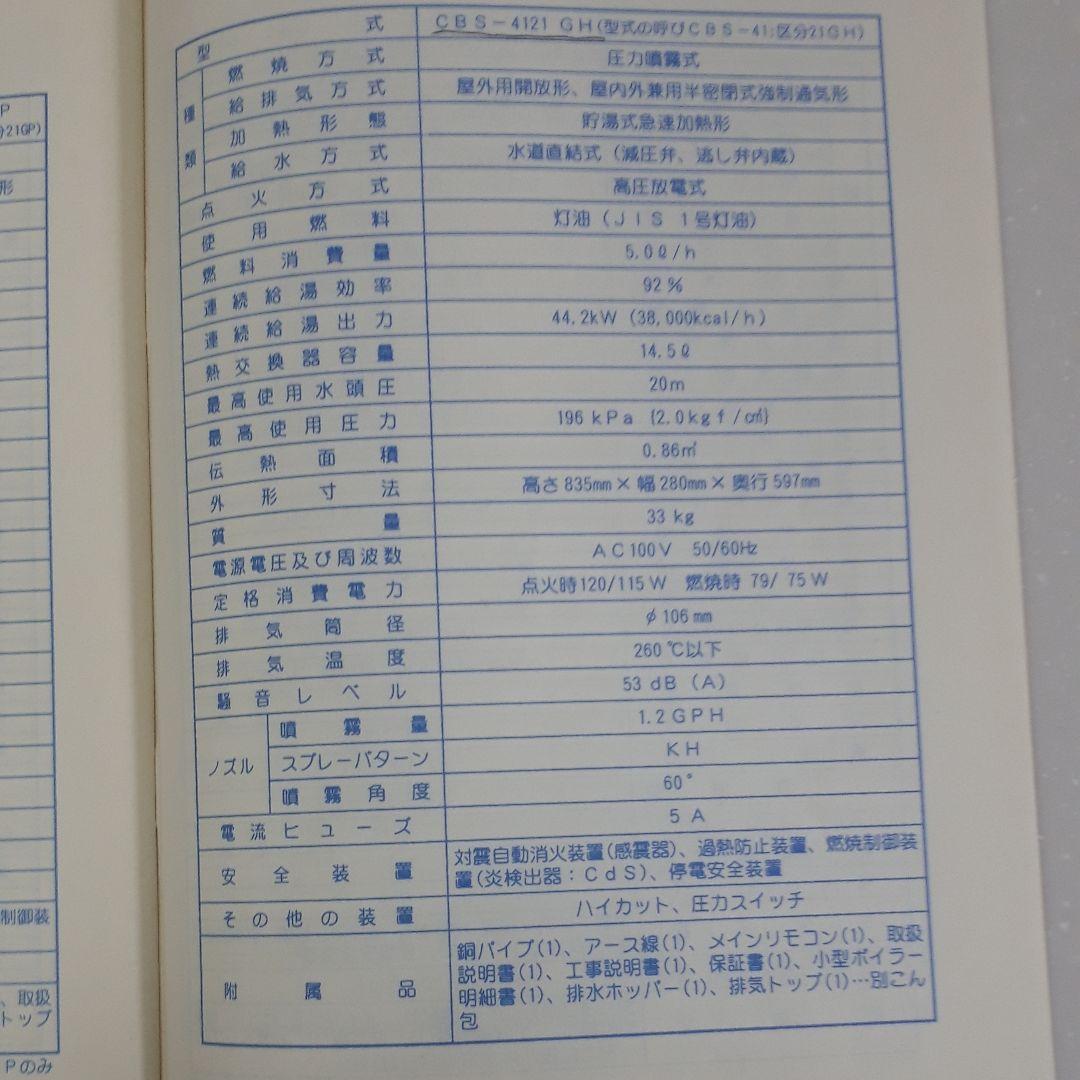 P
分21GP)
形
制御装
、取扱
トップ
Pのみ
型式 CBS-4121 GH(型式の呼びCBS-41;区分21GH)
種類 燃焼方式 圧力噴霧式
給排気方式 屋外用開放形、屋内外兼用半密閉式強制通気形
加熱形態 貯湯式急速加熱形
給水方式 水道直結式（減圧弁、逃し弁内蔵）
点火方式 高圧放電式
使用燃料 灯油（JIS 1号灯油）
燃料消費量 5.0ℓ/h
連続給湯効率 92%
連続給湯出力 44.2kW（38,000kcal/h）
熱交換器容量 14.5ℓ
最高使用水頭圧 20m
最高使用圧力 196 kPa {2.0kgf/c㎡}
伝熱面積 0.86㎡
外形寸法 高さ835mm×幅280mm×奥行597mm
質量 33 kg
電源電圧及び周波数 AC100V 50/60Hz
定格消費電力 点火時120/115W 燃焼時 79/ 75W
排気筒径 φ106mm
排気温度 260℃以下
騒音レベル 53 dB（A）
ノズル 噴霧量 1.2GPH
スプレーパターン KH
噴霧角度 60°
電流ヒューズ 5A
安全装置 対震自動消火装置(感震器)、過熱防止装置、燃焼制御装
置(炎検出器：CdS)、停電安全装置
その他の装置 ハイカット、圧力スイッチ
附属品 銅パイプ(1)、アース線(1)、メインリモコン(1)、取扱
説明書(1)、工事説明書(1)、保証書(1)、小型ボイラー
明細書(1)、排水ホッパー(1)、排気トップ(1)…別こん
包